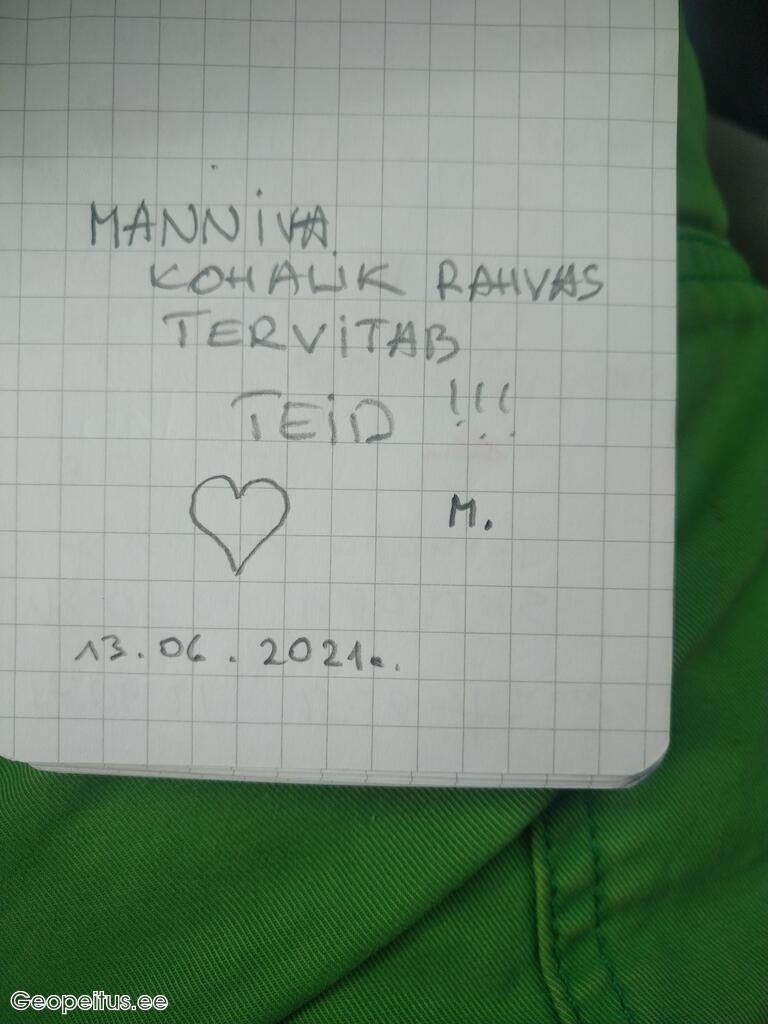 MANNIVA
KOHALIK RAHVAS
TERVITAB
TEID !!!
M.
13.06.2021.
Geopeitus.ee